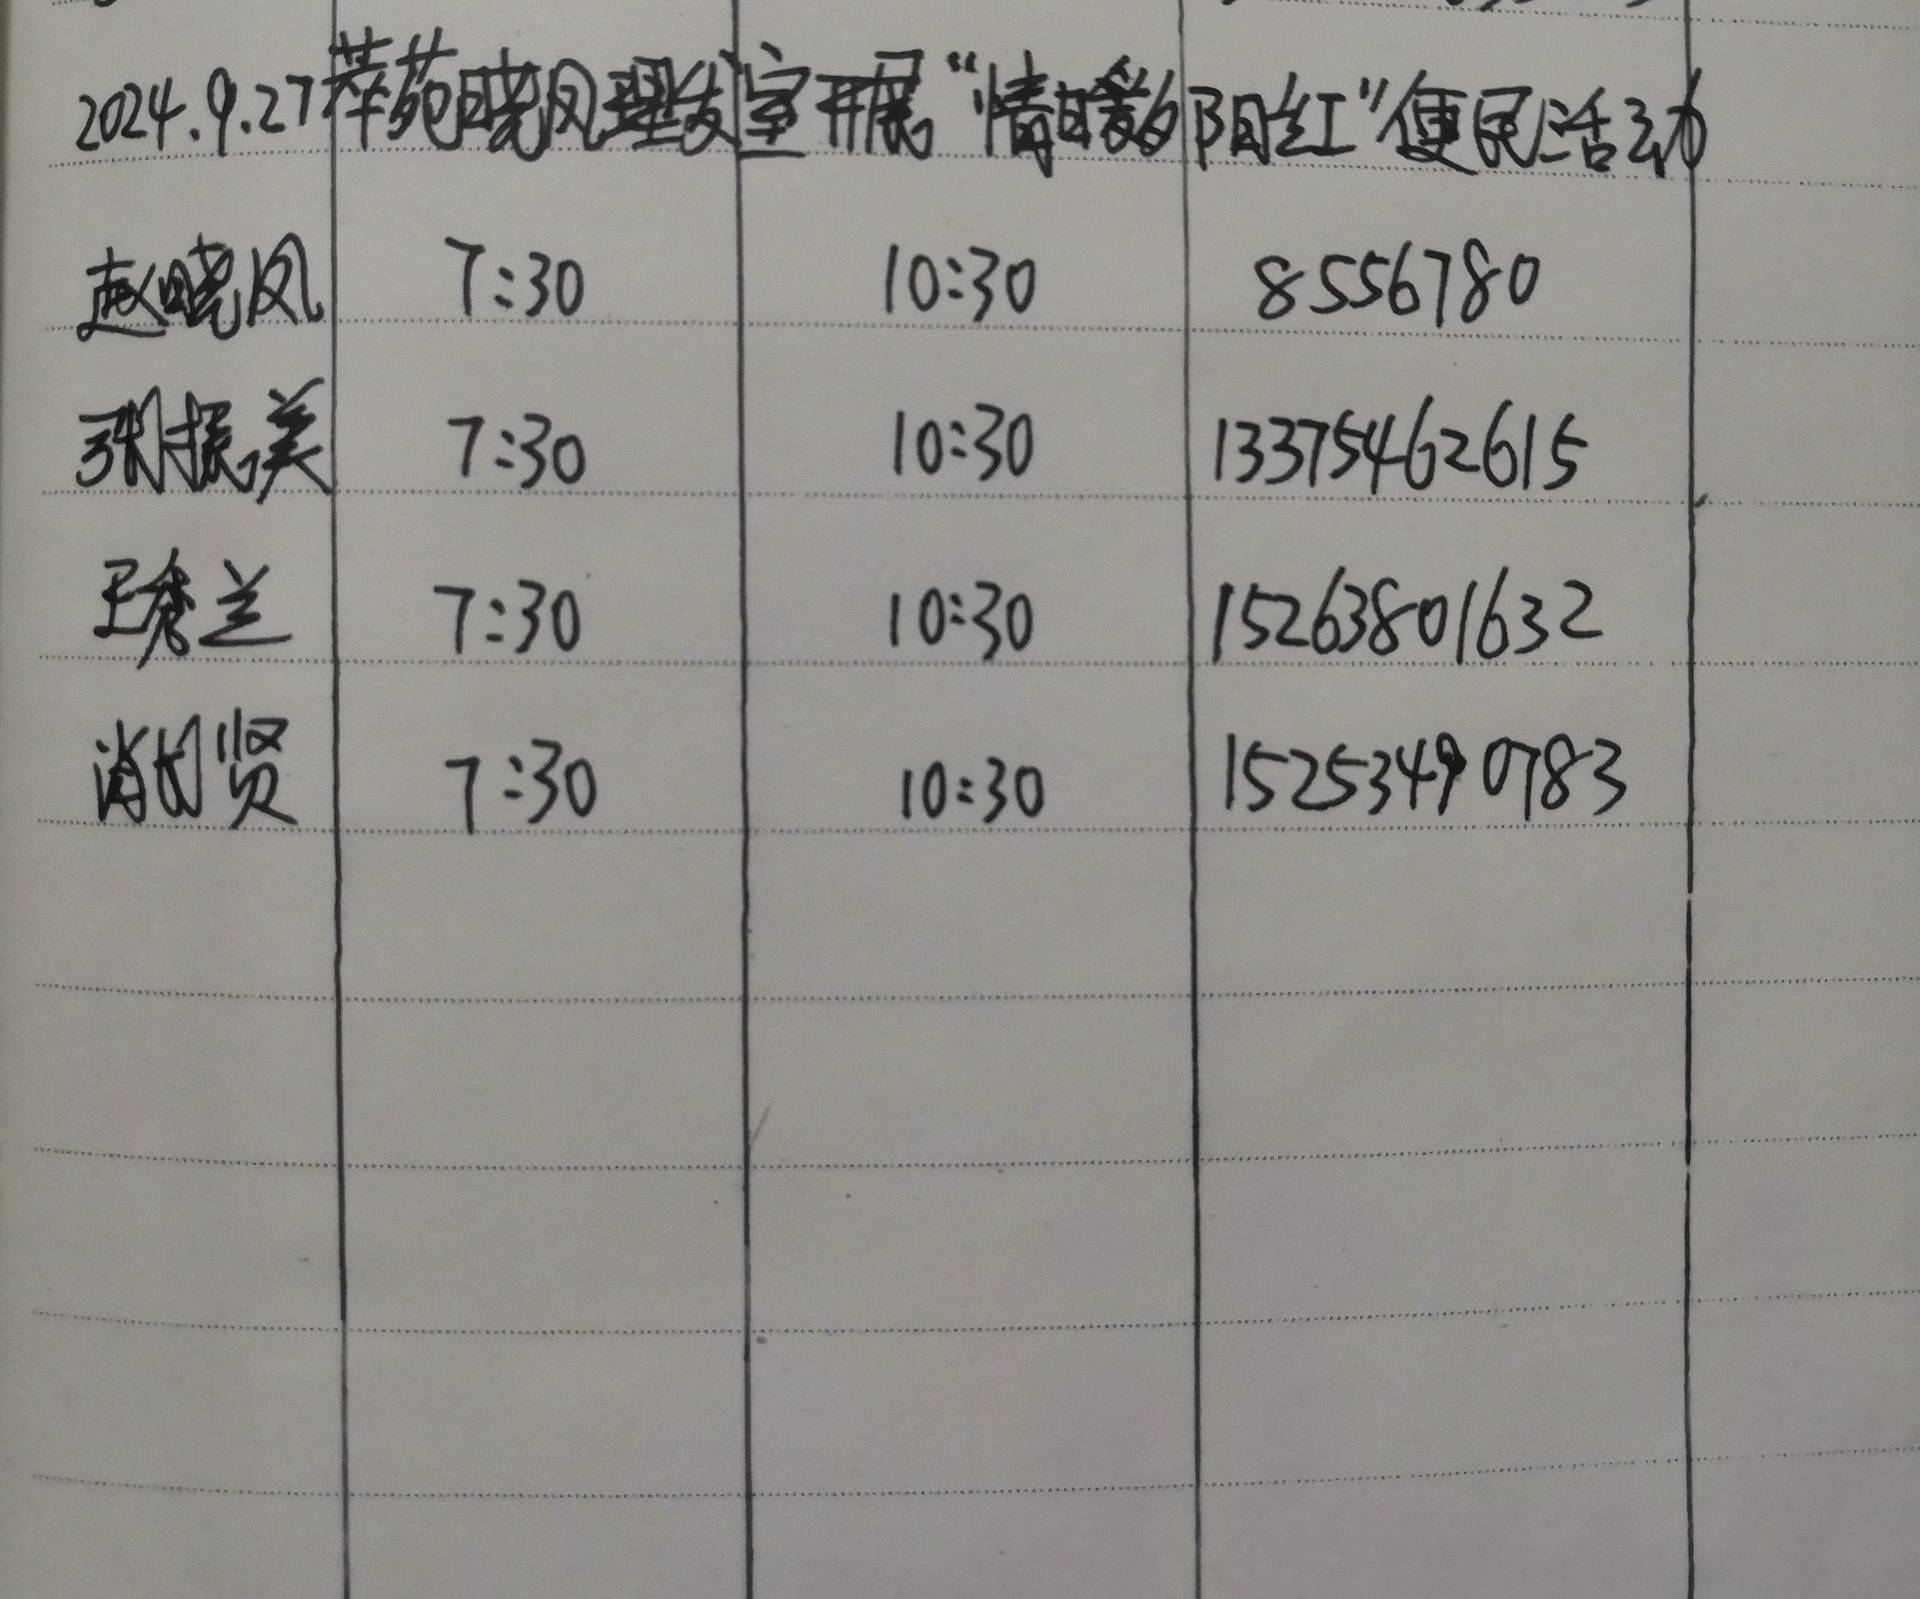 2024.9.27萃苑晓凤理发室开展“情暖夕阳红”便民活动
赵晓凤 7:30 10:30 8556780
张振美 7:30 10:30 13375462615
王秀兰 7:30 10:30 15263801632
肖月贤 7:30 10:30 15253490783